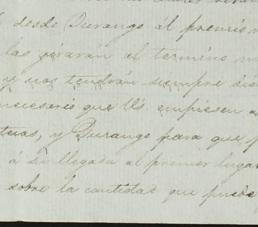 desde Durango ál premis
las jirarán al termino m
y nos tendrán siempre dis
necesario que Us. empiesen
y Durango para que
á su llegada al primer lugar
sobre la cantidad que pued